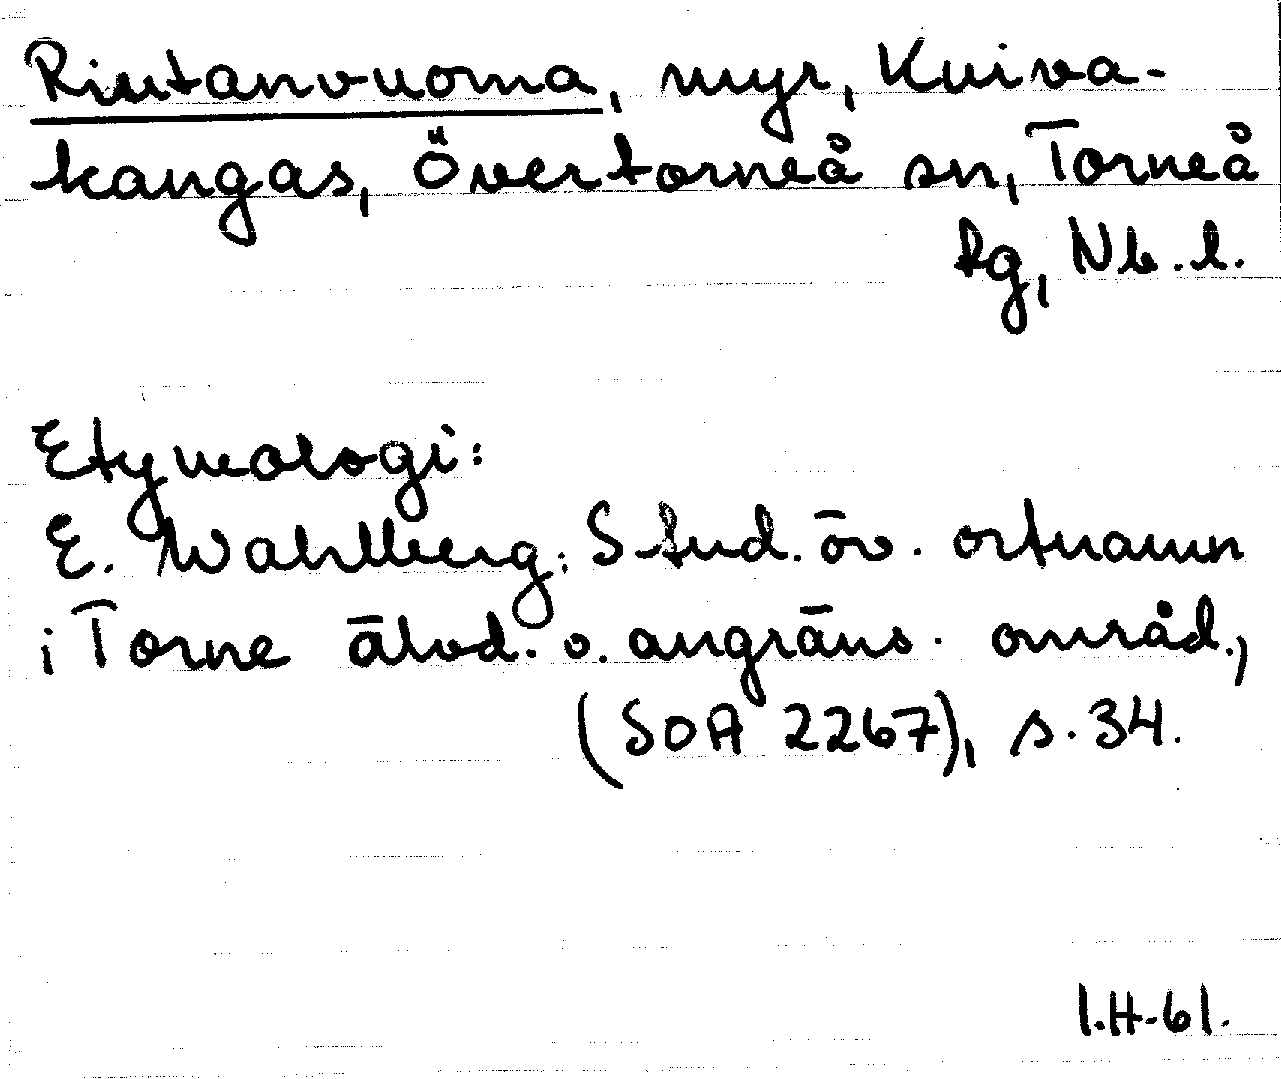 Riutanvuoma, myr, Kuiva-
kangas, Övertorneå sn, Torneå
tg, Nb. l.
Etymologi:
E. Wahlberg: Stud. öv. ortnamn
i Torne älvd. o. angräns. områd.,
(SOA 2267), s. 34.
I.H-61.